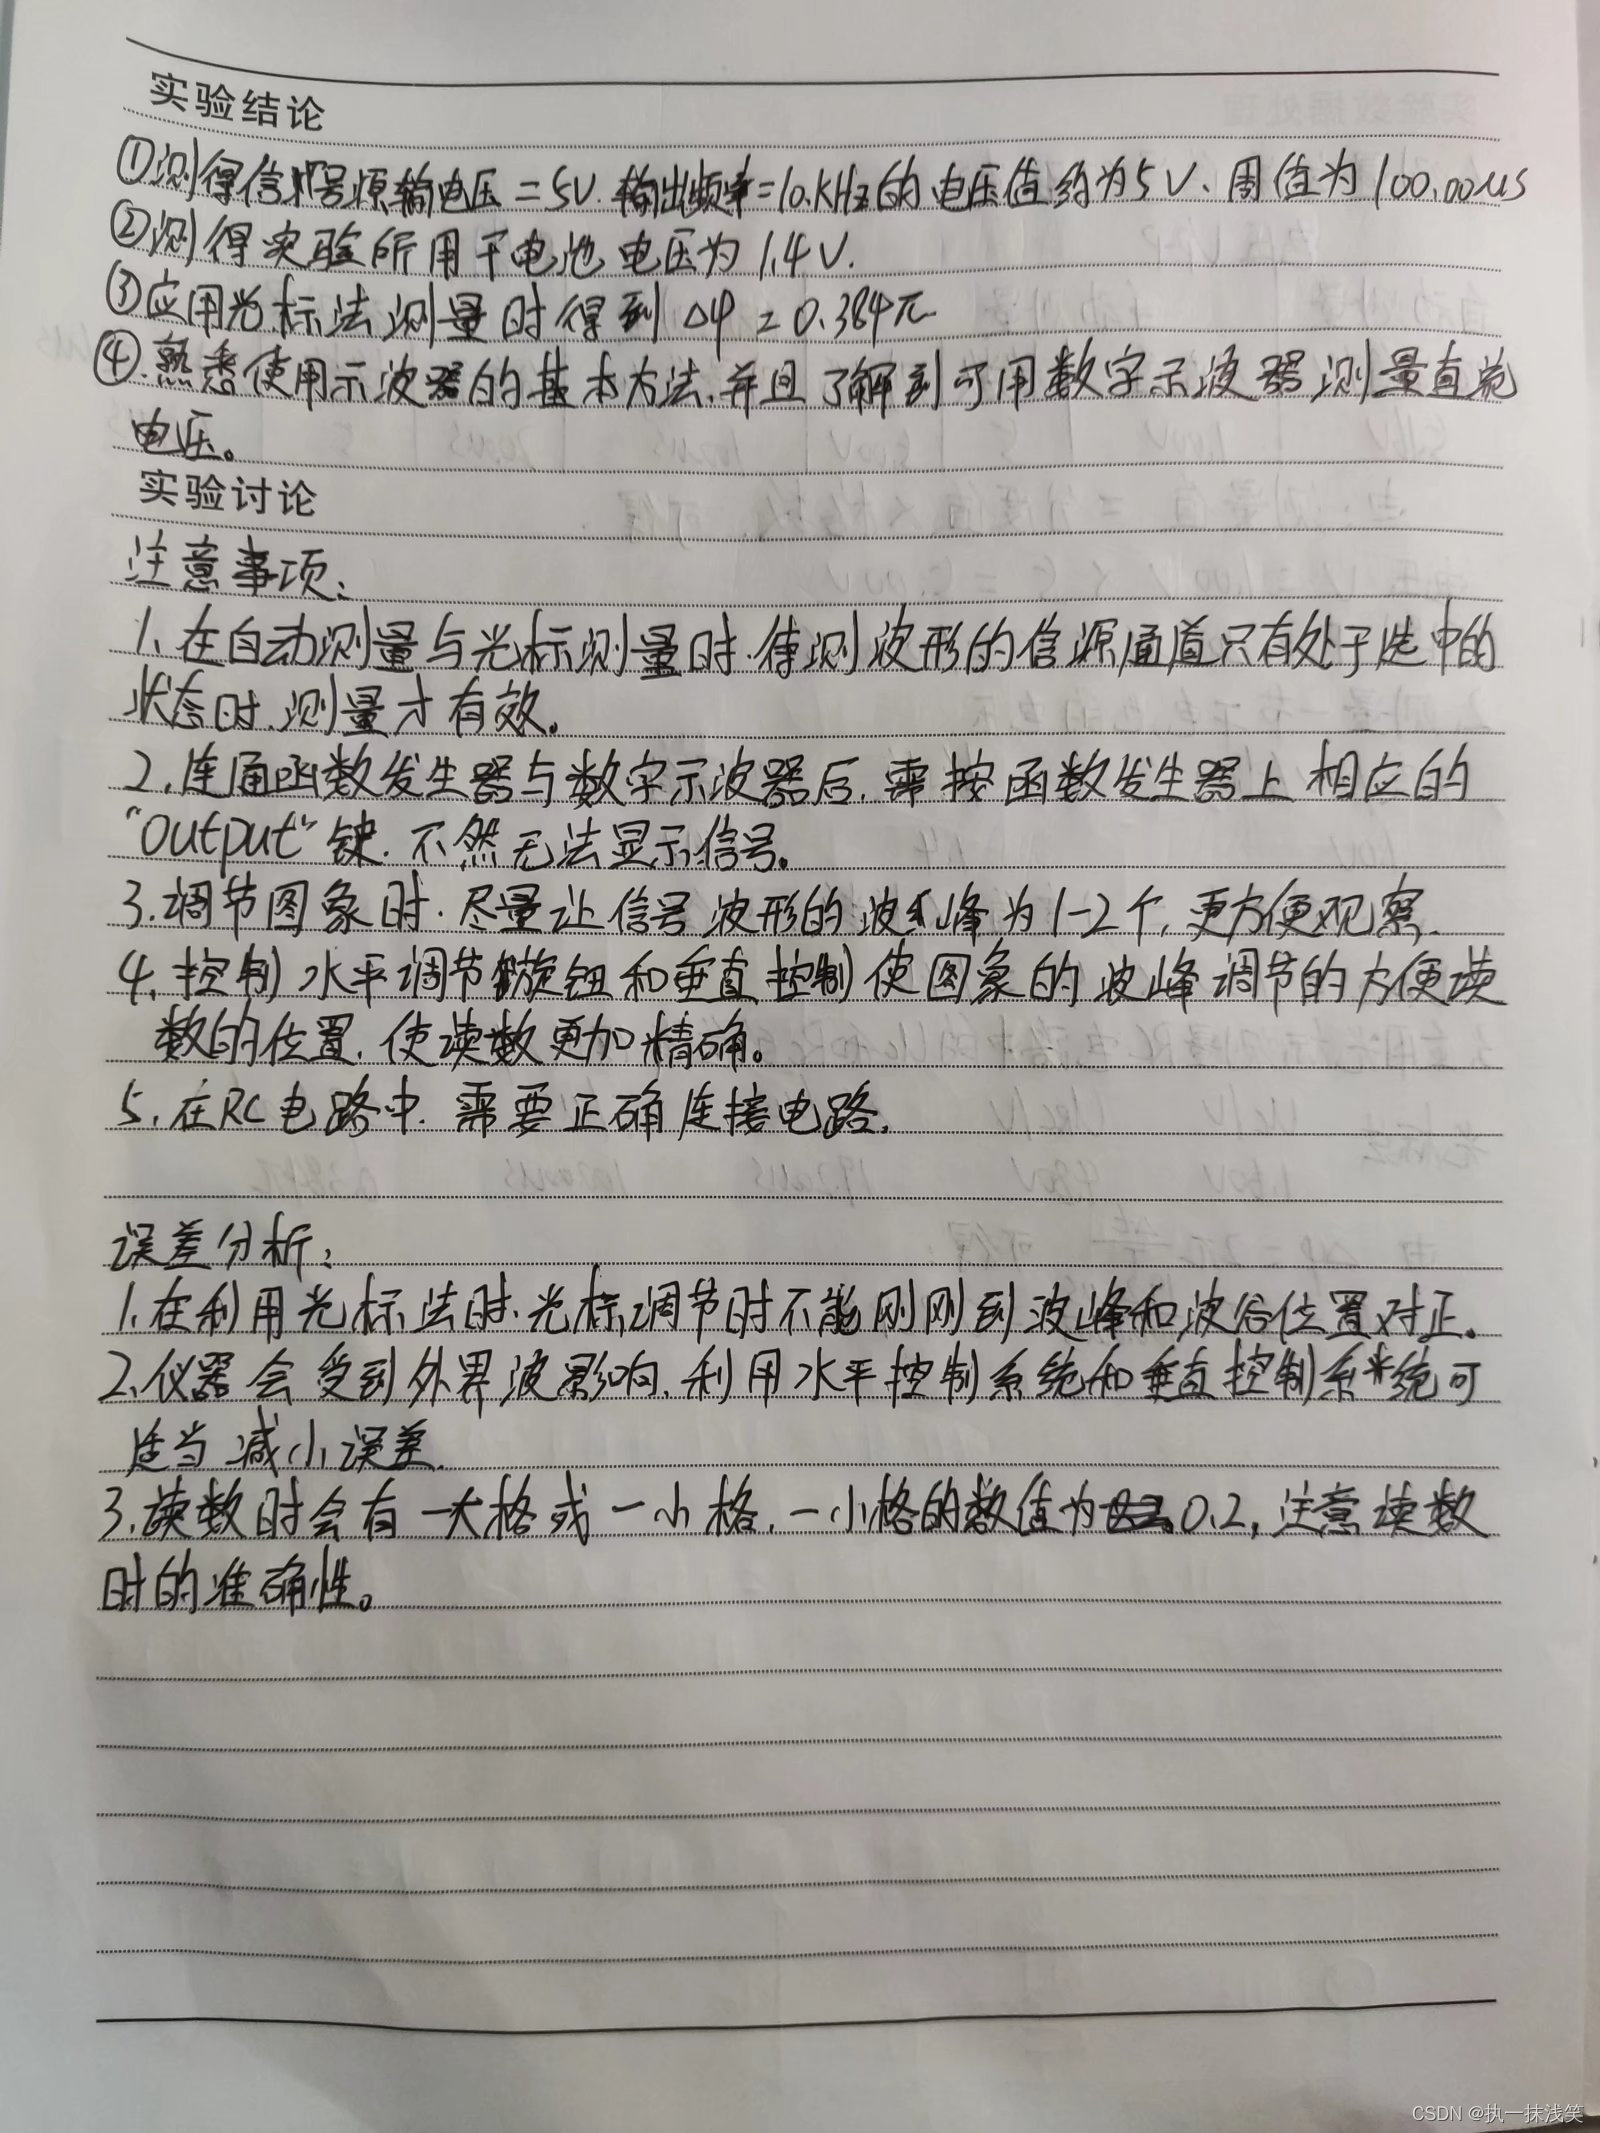 实验结论
①测得信号源输电压=5V.输出频率=10.KHz的电压值约为5V、周值为100.00us
②测得实验所用干电池电压为1.4V.
③应用光标法测量时得到Δφ=0.384π
④.熟悉使用示波器的基本方法,并且了解到可用数字示波器测量直流
电压。
实验讨论
注意事项:
1、在自动测量与光标测量时.待测波形的信源通道只有处于选中的
状态时.测量才有效。
2.连通函数发生器与数字示波器后.需按函数发生器上相应的
“output”键.不然无法显示信号。
3.调节图象时.尽量让信号波形的波峰为1-2个,更方便观察.
4.控制水平调节旋钮和垂直控制使图象的波峰调节的方便读
数的位置.使读数更加精确。
5.在RC电路中.需要正确连接电路.
误差分析:
1.在利用光标法时.光标调节时不能刚刚到波峰和波谷位置对正.
2.仪器会受到外界波影响.利用水平控制系统和垂直控制系统可
适当减小误差.
3.读数时会有一大格或一小格.一小格的数值为0.2,注意读数
时的准确性。
CSDN @执一抹浅笑